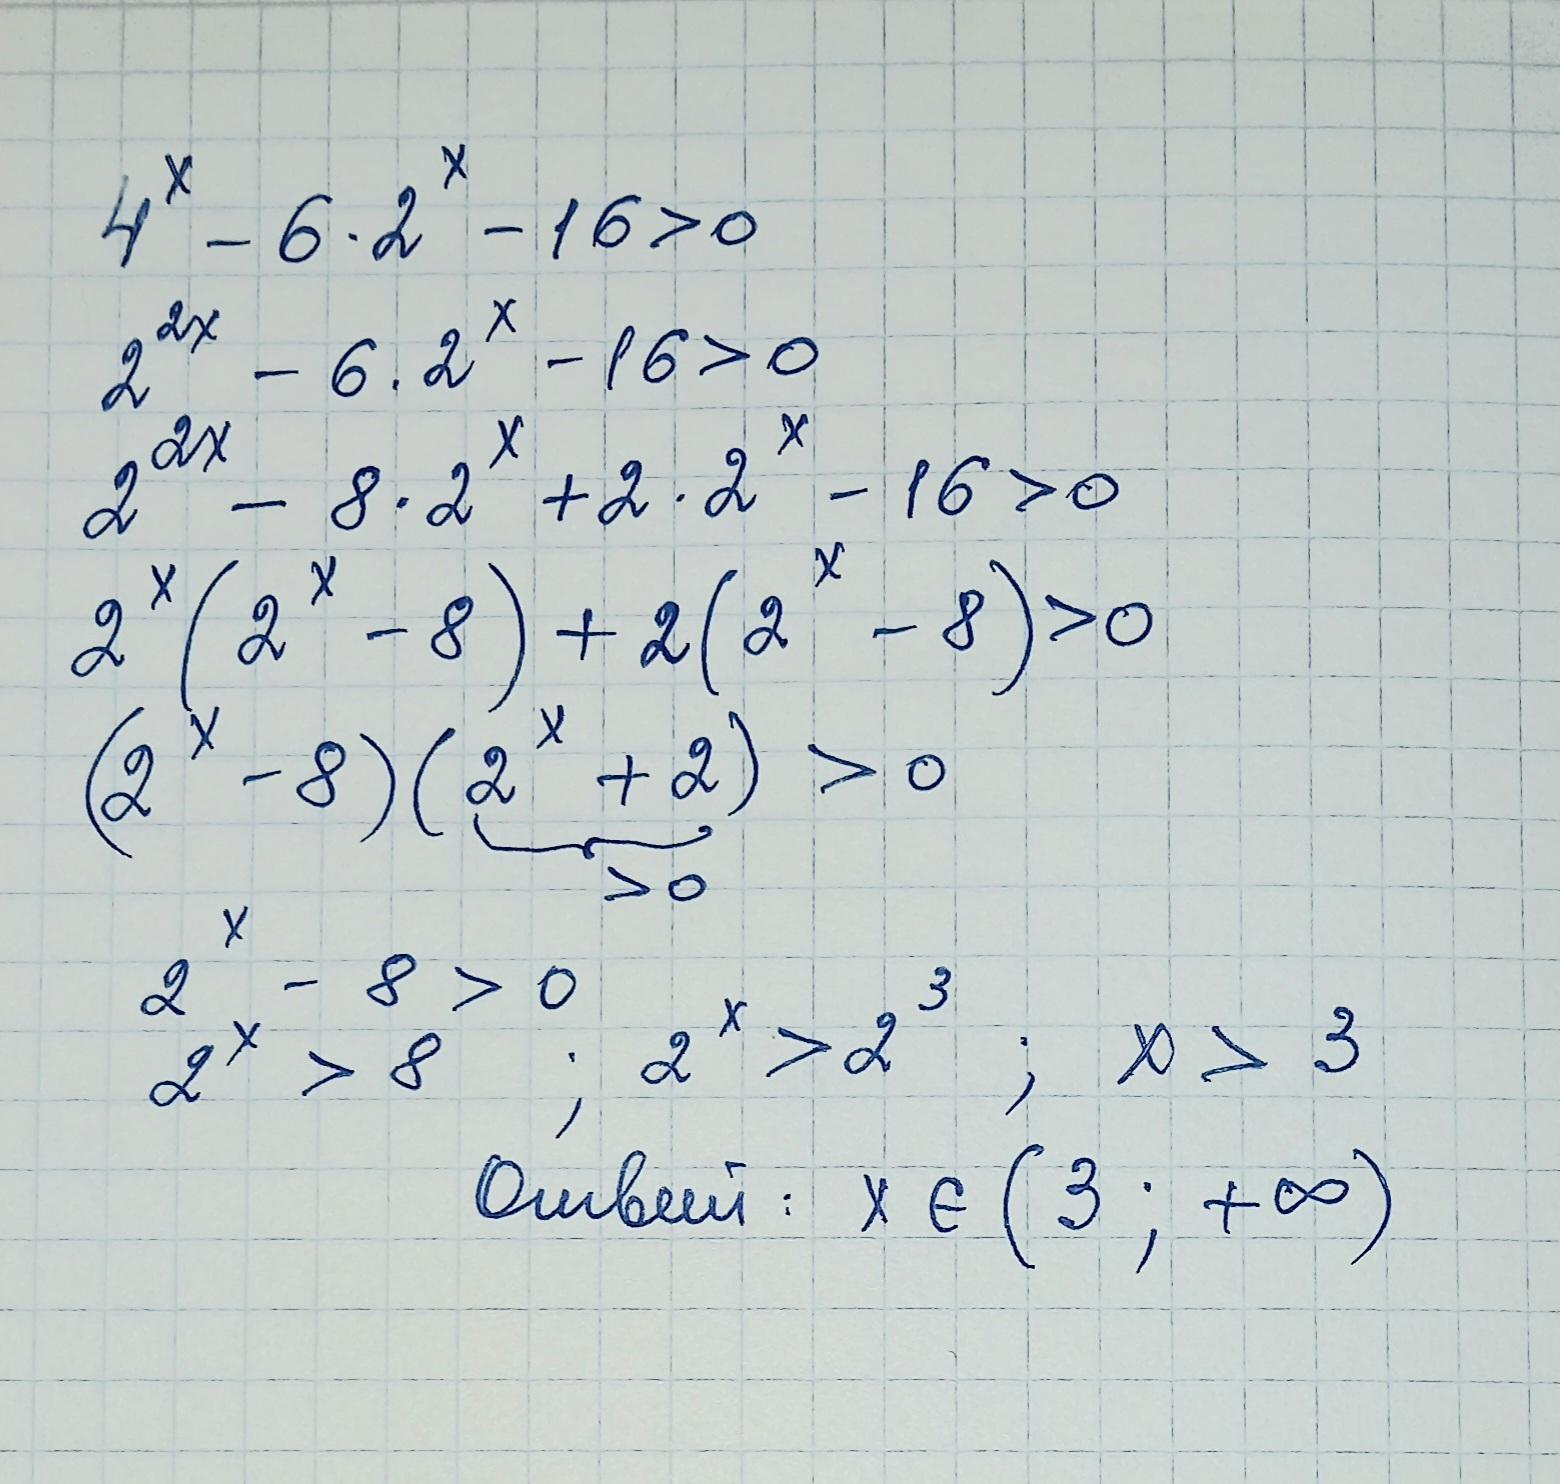 4ˣ - 6·2ˣ - 16 > 0
2²ˣ - 6·2ˣ - 16 > 0
2²ˣ - 8·2ˣ + 2·2ˣ - 16 > 0
2ˣ(2ˣ - 8) + 2(2ˣ - 8) > 0
(2ˣ - 8)(2ˣ + 2) > 0
> 0
2ˣ - 8 > 0
2ˣ > 8 ; 2ˣ > 2³ ; x > 3
Ответ: x ∈ (3 ; +∞)